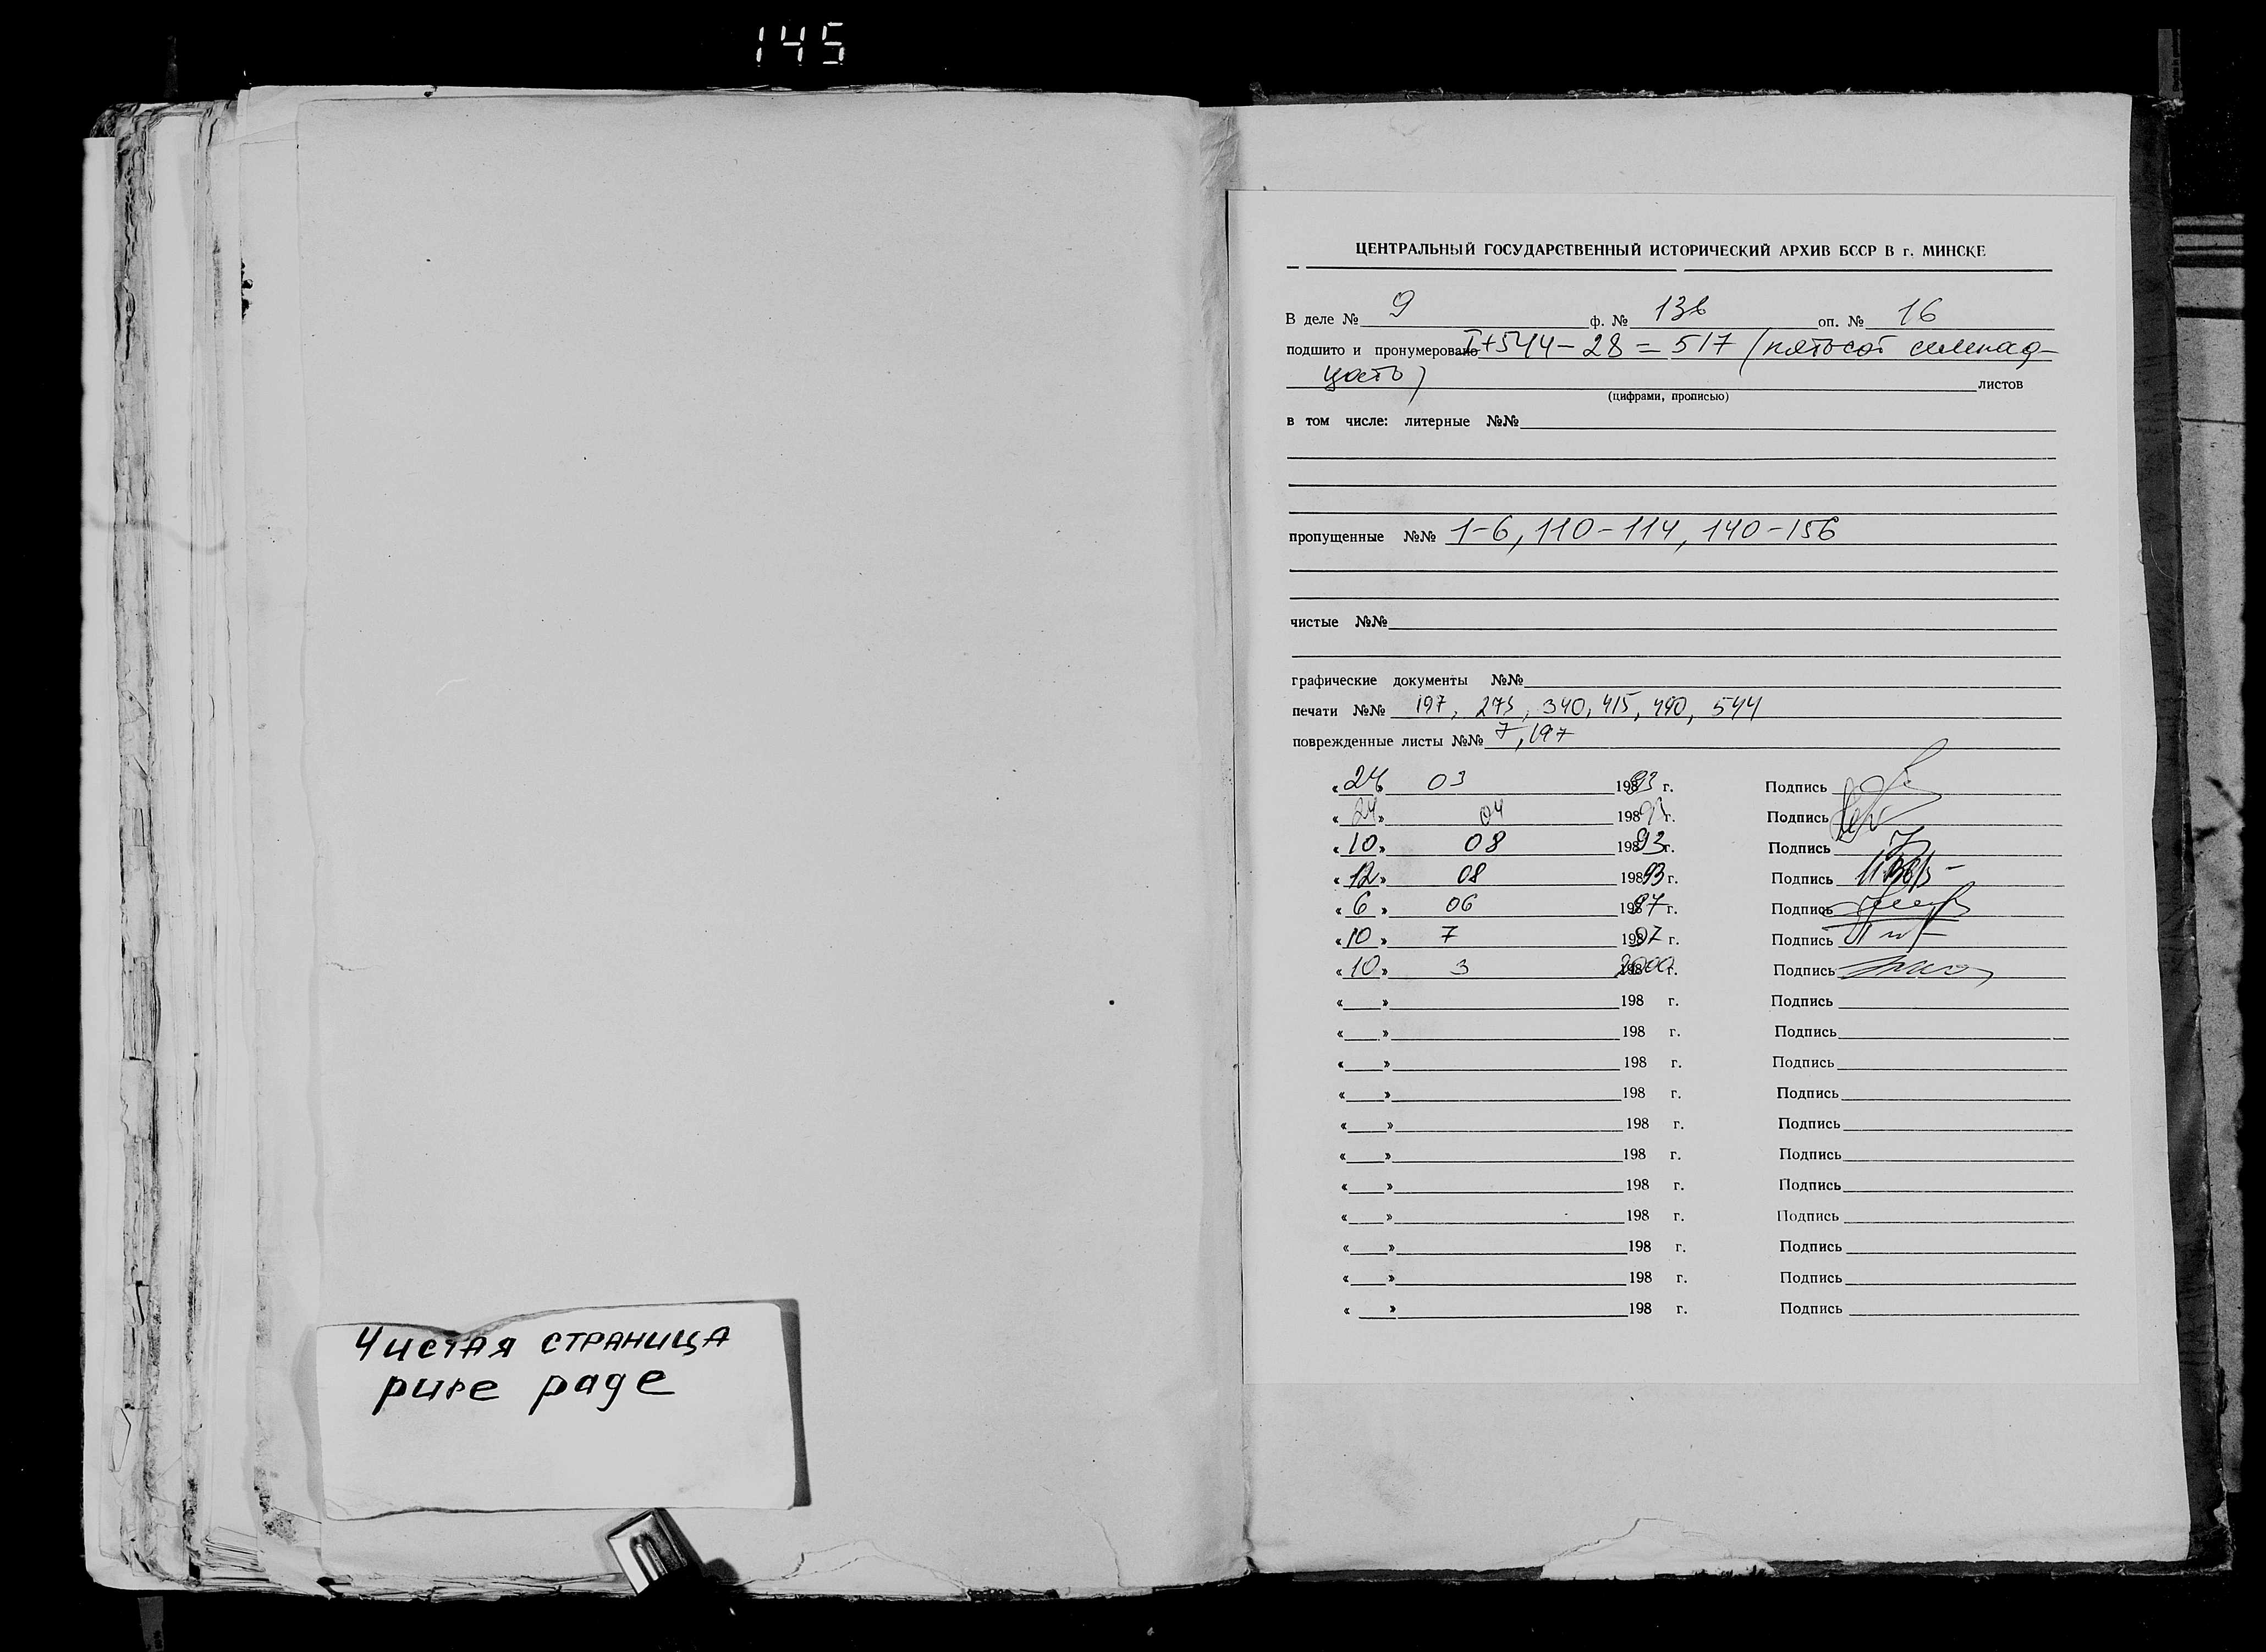 145
Чистая страница
pure page
ЦЕНТРАЛЬНЫЙ ГОСУДАРСТВЕННЫЙ ИСТОРИЧЕСКИЙ АРХИВ БССР В г. МИНСКЕ
В деле № 9 ф. № 136 оп. № 16
подшито и пронумеровано I+544-28=517 (пятьсот семнад-
цать) листов
(цифрами, прописью)
в том числе: литерные №№
пропущенные №№ 1-6, 110-114, 140-156
чистые №№
графические документы №№
печати №№ 197, 273, 340, 415, 490, 544
поврежденные листы №№ 7, 197
«24» 03 19893 г. Подпись
«24» 04 19893 г. Подпись
«10» 08 19893 г. Подпись
«12» 08 19893 г. Подпись
«6» 06 19897 г. Подпись
«10» 7 19897 г. Подпись
«10» 3 2000 г. Подпись
« » 198 г. Подпись
« » 198 г. Подпись
« » 198 г. Подпись
« » 198 г. Подпись
« » 198 г. Подпись
« » 198 г. Подпись
« » 198 г. Подпись
« » 198 г. Подпись
« » 198 г. Подпись
« » 198 г. Подпись
« » 198 г. Подпись